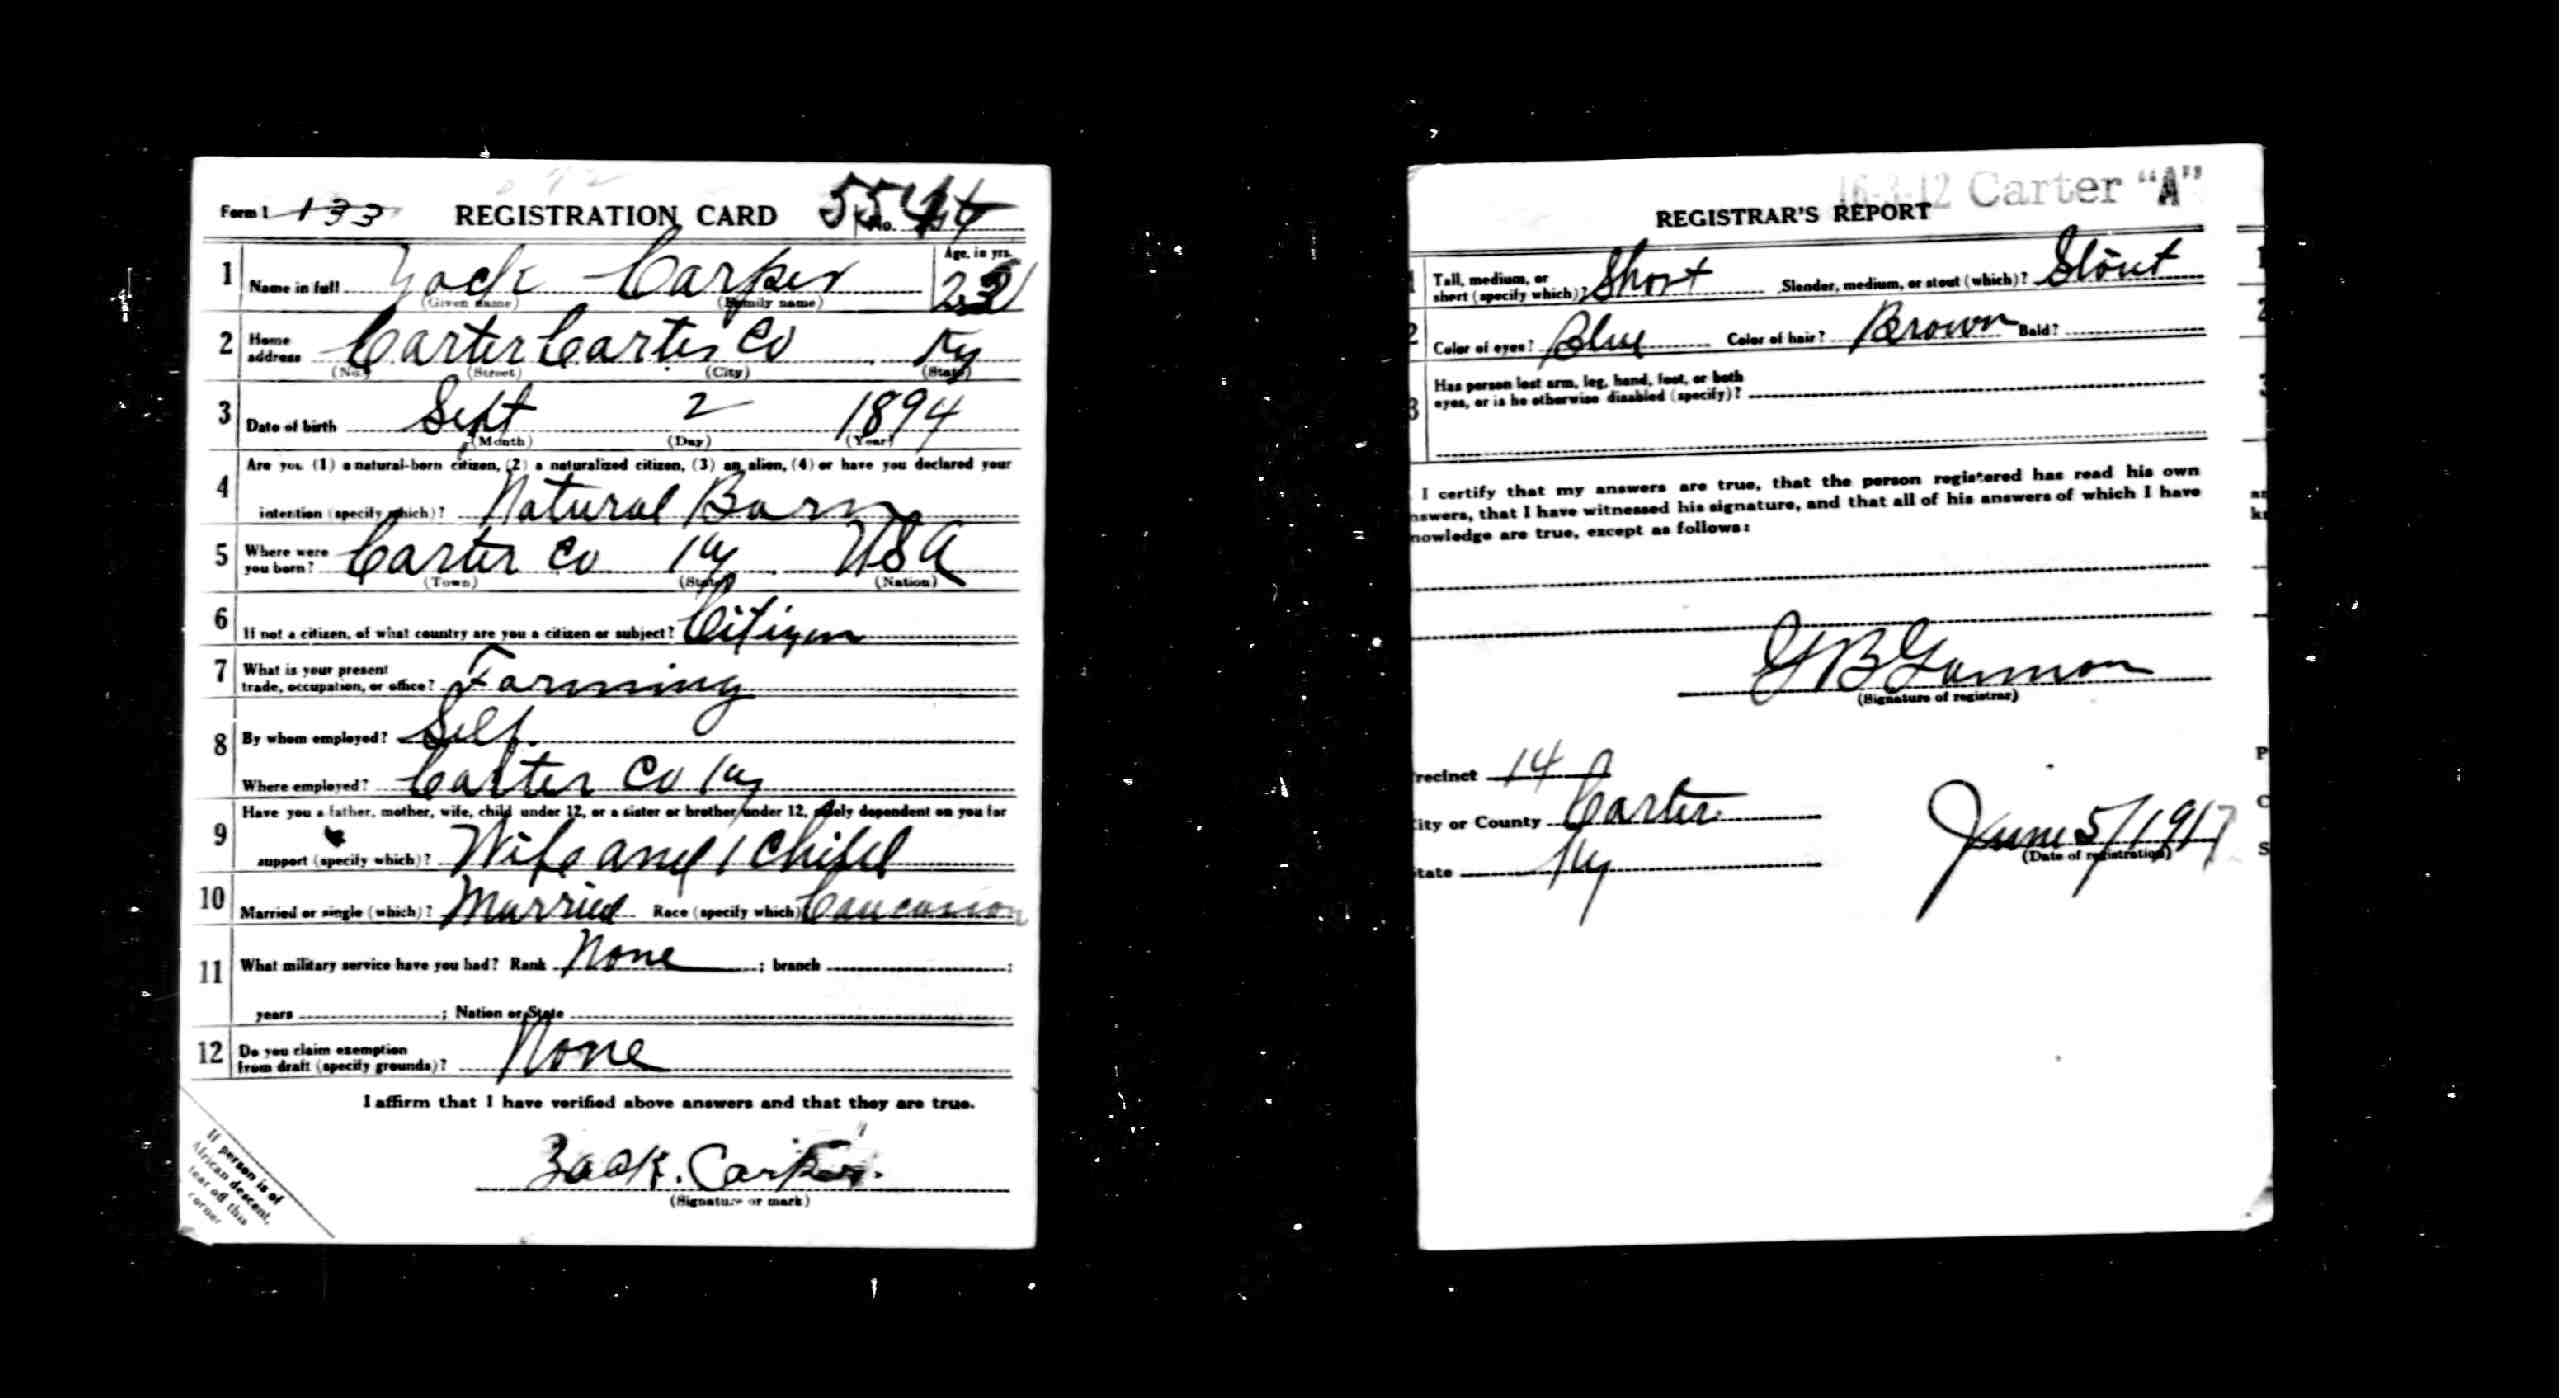 Form 1 133 REGISTRATION CARD No.
1 Name in full Zack Carper Age, in yrs.
(Given name) (Family name)
2 Home address Carter Carter Co Ky
(No.) (Street) (City) (State)
3 Date of birth Sept 2 1894
(Month) (Day) (Year)
Are you (1) a natural-born citizen, (2) a naturalized citizen, (3) an alien, (4) or have you declared your
4 intention (specify which)? Natural Born
5 Where were you born? Carter Co Ky USA
(Town) (State) (Nation)
6 If not a citizen, of what country are you a citizen or subject? Citizen
7 What is your present
trade, occupation, or office? Farming
8 By whom employed? Self
Where employed? Carter Co Ky
Have you a father, mother, wife, child under 12, or a sister or brother under 12, solely dependent on you for
9 support (specify which)? Wife and 1 Child
10 Married or single (which)? Married Race (specify which)? Caucasion
11 What military service have you had? Rank None ; branch ;
years ; Nation or State
12 Do you claim exemption
from draft (specify grounds)? None
I affirm that I have verified above answers and that they are true.
Zack. Carper.
(Signature or mark)
If person is of
African descent,
tear off this
corner
16-3-12 Carter "A"
REGISTRAR'S REPORT
1 Tall, medium, or
short (specify which)? Short Slender, medium, or stout (which)? Stout
2 Color of eyes? Blue Color of hair? Brown Bald?
Has person lost arm, leg, hand, foot, or both
3 eyes, or is he otherwise disabled (specify)?
I certify that my answers are true, that the person registered has read his own
nswers, that I have witnessed his signature, and that all of his answers of which I have
nowledge are true, except as follows:
(Signature of registrar)
recinct 14
ity or County Carter
tate Ky
June 5/1917
(Date of registration)